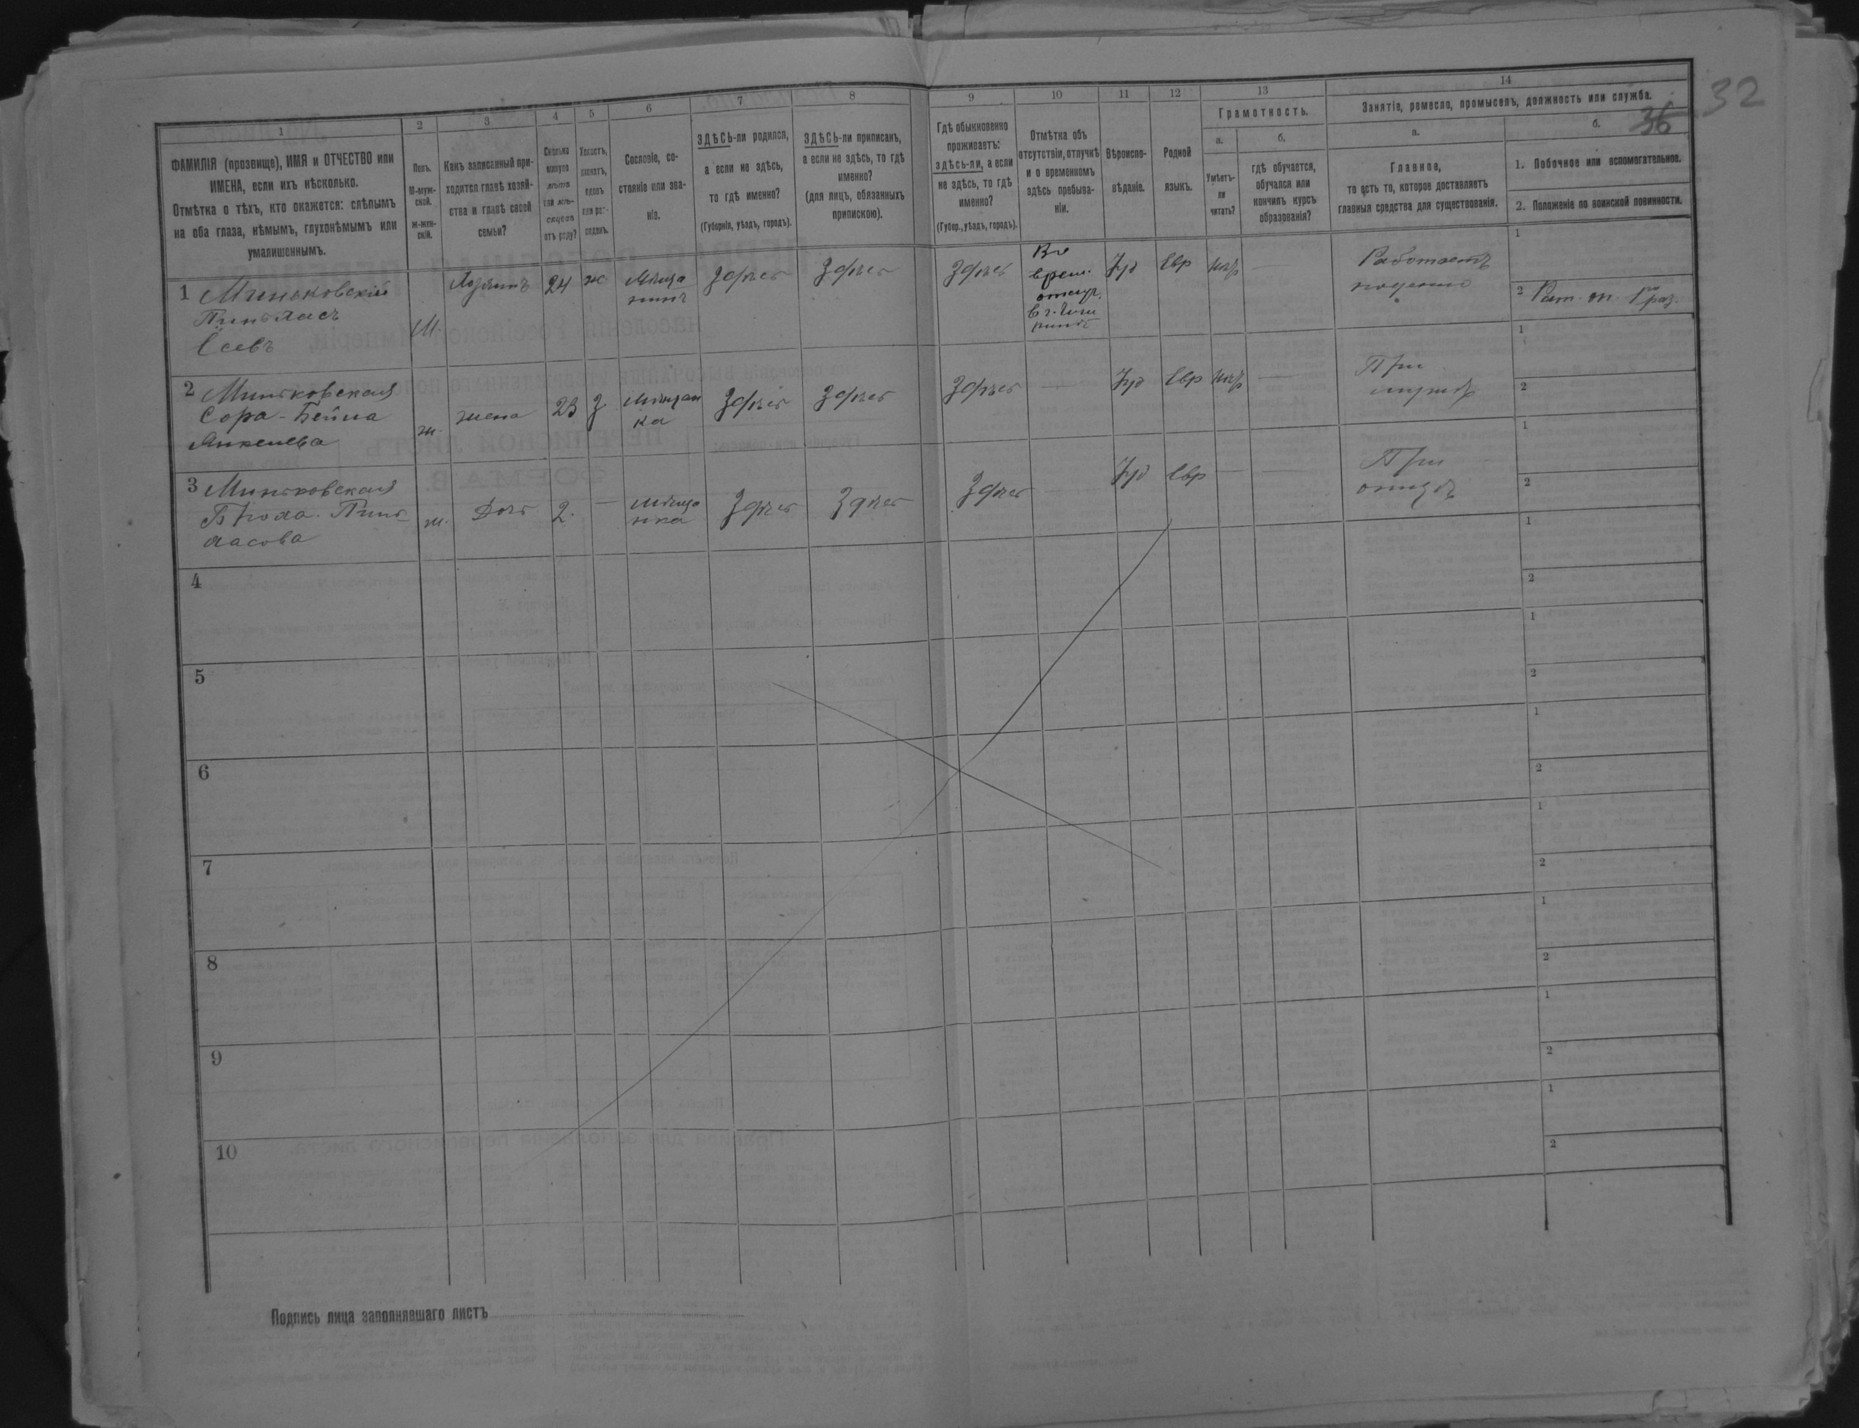 32
36
1
2
3
4
5
6
7
8
9
10
11
12
13
14
ФАМИЛІЯ (прозвище), ИМЯ и ОТЧЕСТВО или
ИМЕНА, если ихъ нѣсколько.
Отмѣтка о тѣхъ, кто окажется: слѣпымъ
на оба глаза, нѣмымъ, глухонѣмымъ или
умалишеннымъ.
Полъ.
М-муж-
ской.
Ж-жен-
скій.
Какъ записанный при-
ходится главѣ хозяй-
ства и главѣ своей
семьи?
Сколько
минуло
лѣтъ
или мѣ-
сяцевъ
отъ роду?
Холостъ,
женатъ,
вдовъ
или раз-
веденъ.
Сословіе, со-
стояніе или зва-
ніе.
ЗДѢСЬ-ли родился,
а если не здѣсь,
то гдѣ именно?
(Губернія, уѣздъ, городъ).
ЗДѢСЬ-ли приписанъ,
а если не здѣсь, то гдѣ
именно?
(для лицъ, обязанныхъ
припискою).
Гдѣ обыкновенно
проживаетъ:
здѣсь-ли, а если
не здѣсь, то гдѣ
именно?
(Губер., уѣздъ, городъ).
Отмѣтка объ
отсутствіи, отлучкѣ
и о временномъ
здѣсь пребыва-
ніи.
Вѣроиспо-
вѣданіе.
Родной
языкъ.
Грамотность.
а.
Умѣетъ-
ли
читать?
б.
гдѣ обучается,
обучался или
кончилъ курсъ
образованія?
Занятіе, ремесло, промыселъ, должность или служба.
а.
Главное,
то есть то, которое доставляетъ
главныя средства для существованія.
б.
1. Побочное или вспомогательное.
2. Положеніе по воинской повинности.
1 Миньковскій
Пинхасъ
м.
Хозяинъ
24
ж
Мѣща
нинъ
Здѣсь
Здѣсь
Здѣсь
Во
врем.
отлуч.
Іуд
Евр
Работаетъ
1
2
2 Миньковская
Сора-Бейла
ж.
жена
23
З
Мѣщан
ка
Здѣсь
Здѣсь
Здѣсь
Іуд
Евр
При
мужѣ
1
2
3 Миньковская
ж.
Дочь
2.
мѣща
нка
Здѣсь
Здѣсь
Здѣсь
Іуд
Евр
При
отцѣ
1
2
4
1
2
5
1
2
6
1
2
7
1
2
8
1
2
9
1
2
10
1
2
Подпись лица заполнявшаго листъ